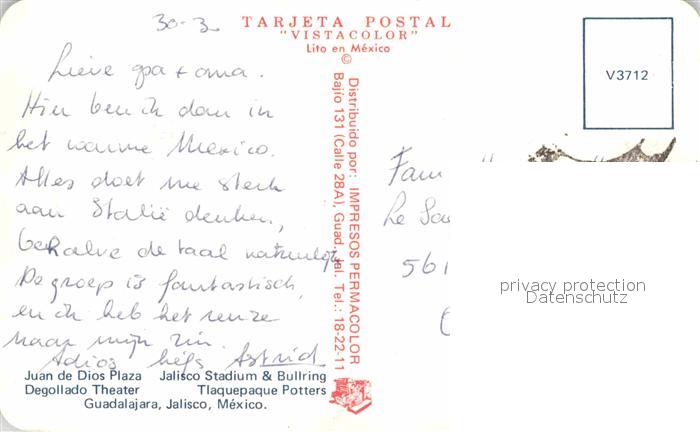 30-3
TARJETA POSTAL
"VISTACOLOR"
Lito en México
©
Lieve opa + oma.
Hier ben ik dan in
het warme Mexico.
Alles doet me sterk
aan Italië denken,
behalve de taal natuurlijk
De groep is fantastisch,
en ik heb het reuze
naar mijn zin.
Adios liefs Astrid
Juan de Dios Plaza Jalisco Stadium & Bullring
Degollado Theater Tlaquepaque Potters
Guadalajara, Jalisco, México.
Distribuido por: IMPRESOS PERMACOLOR
Bajío 131 (Calle 28A), Guad. Jal. Tel.: 18-22-11
V3712
Fam
561
privacy protection
Datenschutz